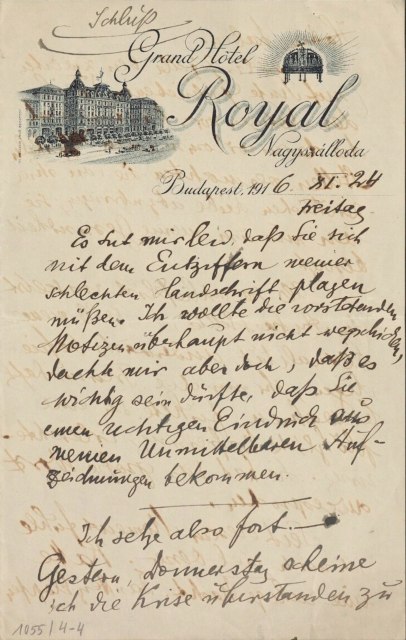 Schluß
Grand Hôtel
Royal
Nagyszálloda
Budapest, 1916. XI. 24
Freitag
Es tut mir leid, daß Sie sich
mit dem Entziffern meiner
schlechten Handschrift plagen
müßen. Ich wollte die vorstehenden
Notizen überhaupt nicht wegschicken,
dachte mir aber doch, daß es
wichtig sein dürfte, daß Sie
einen richtigen Eindruck aus
meinen Unmittelbaren Auf-
zeichnungen bekommen.
Ich setze also fort. —
Gestern, Donnerstag scheine
ich die Krise überstanden zu
1055/4-4